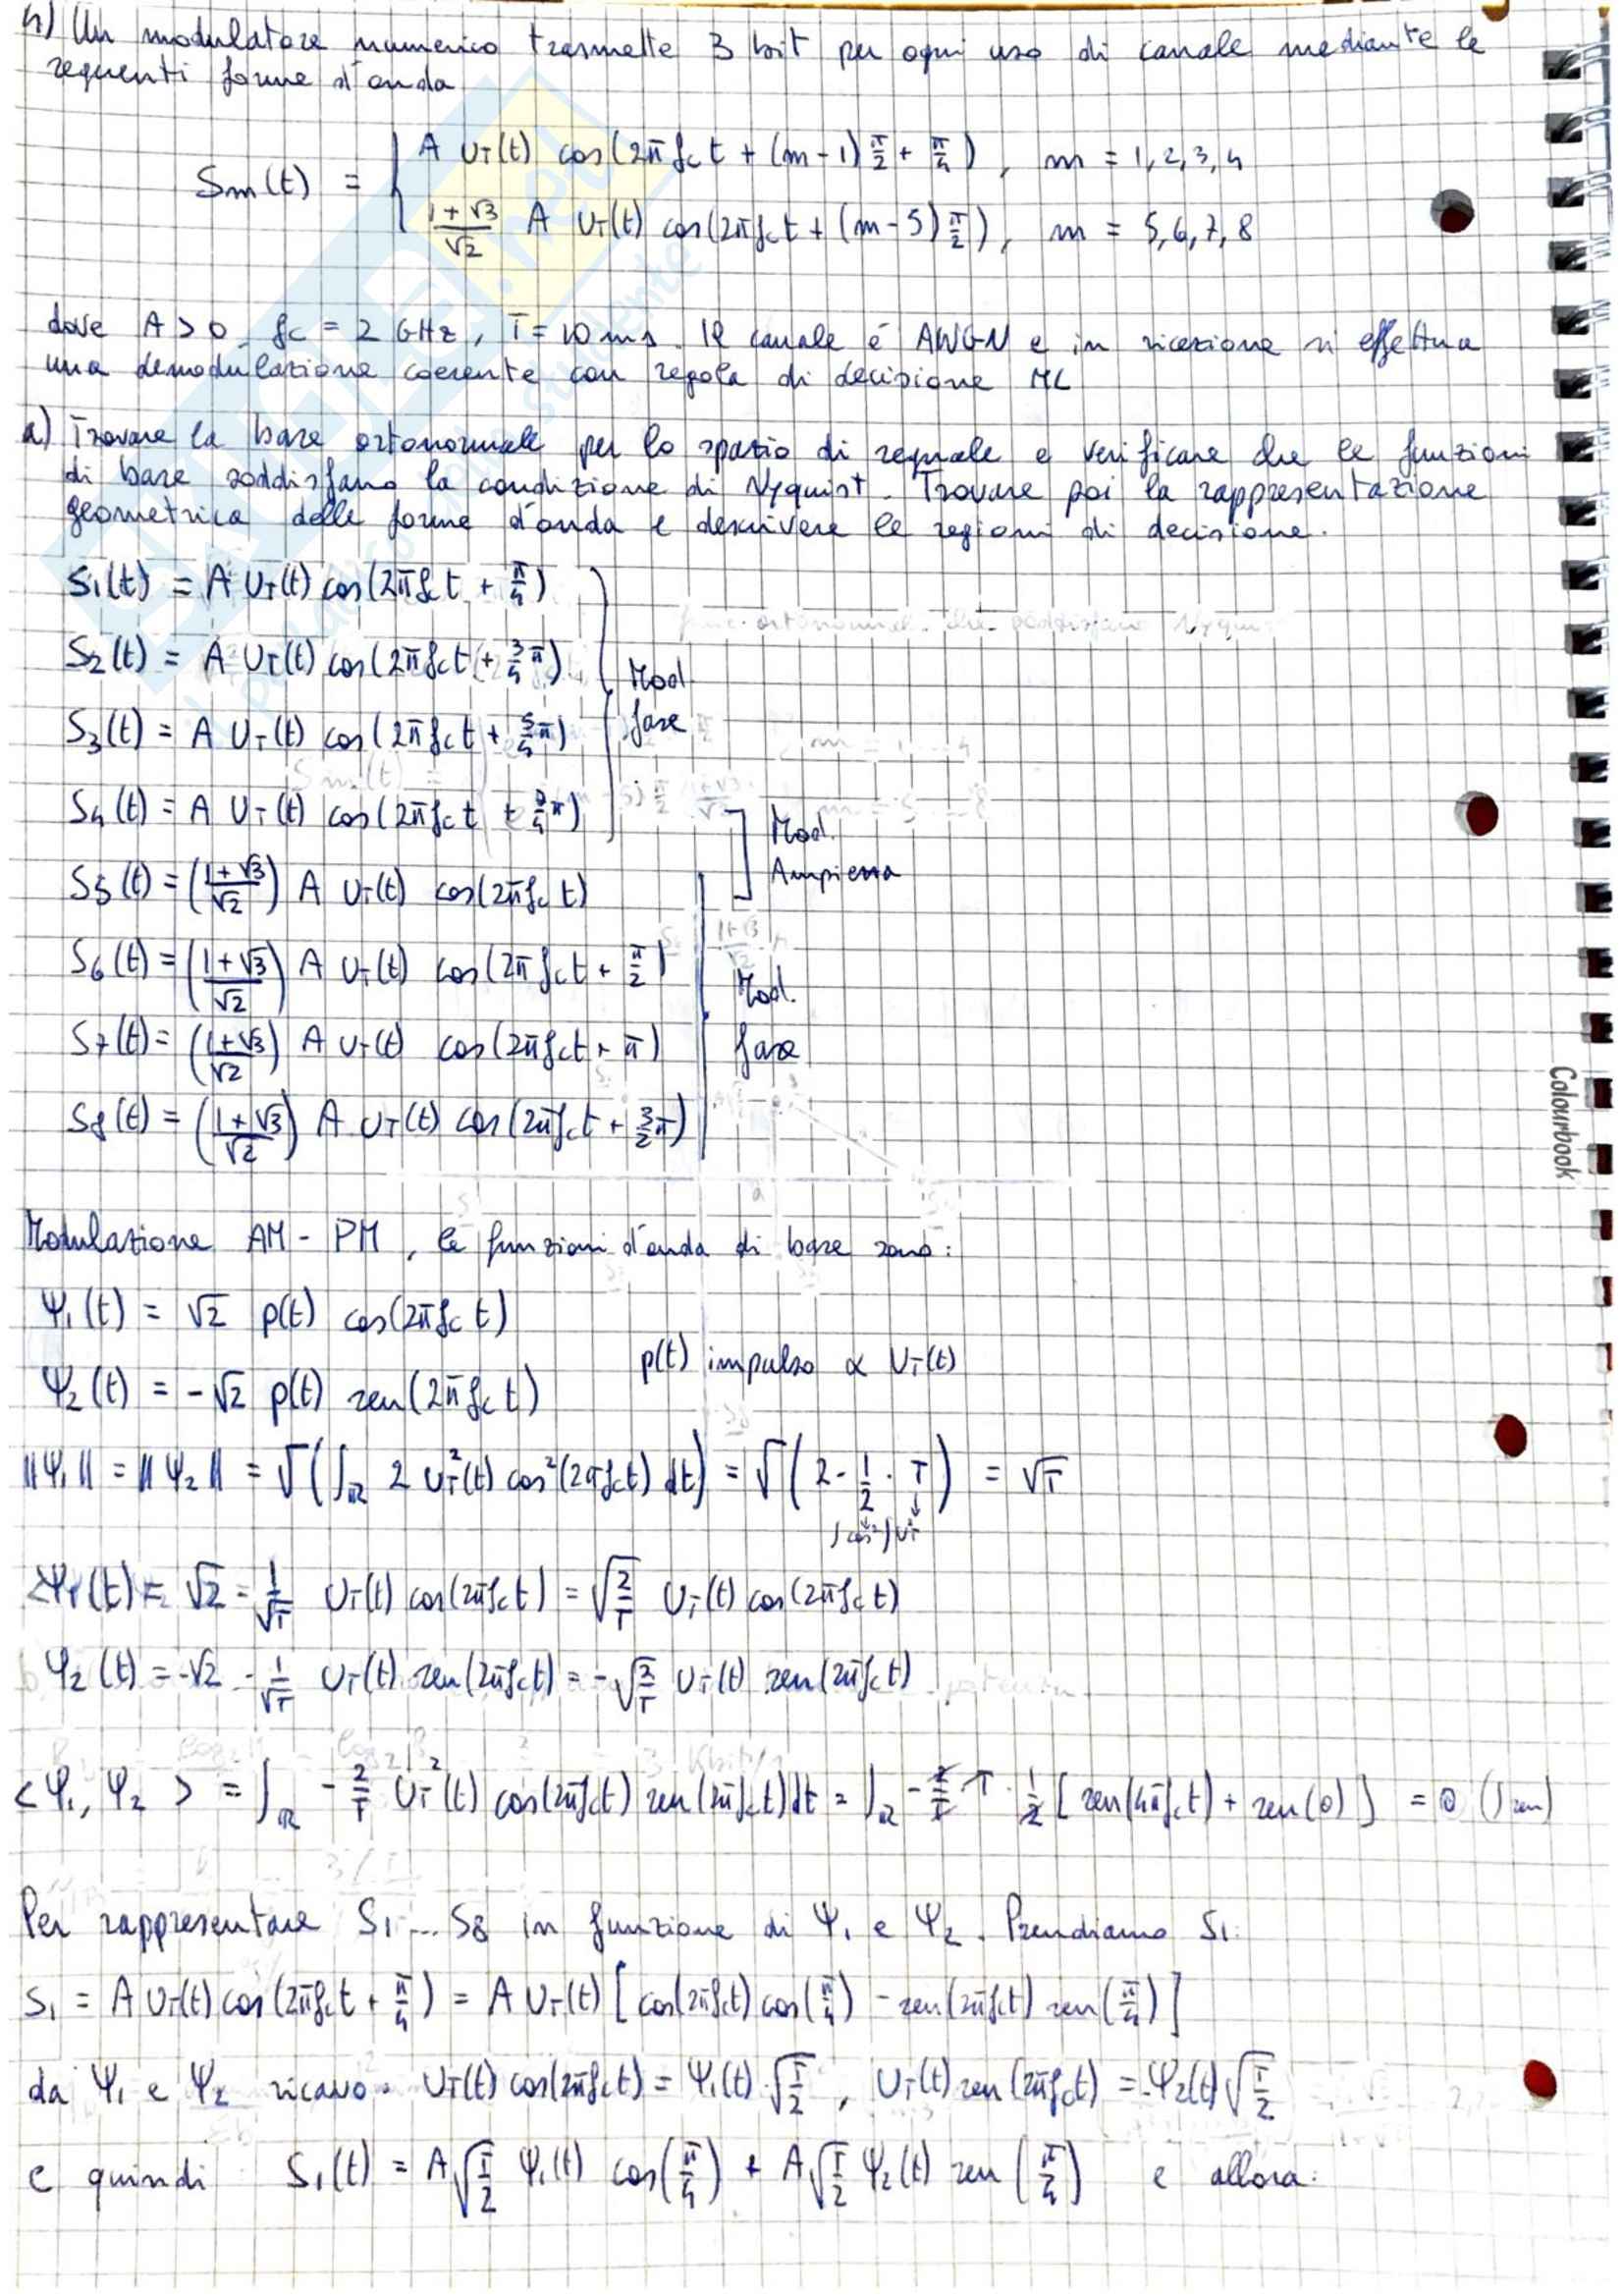 4) Un modulatore numerico trasmette 3 bit per ogni uso di canale mediante le
seguenti forme d'onda
Sm(t) = { A UT(t) cos(2π fc t + (m-1) π/2 + π/4), m = 1,2,3,4
(1+√3)/√2 A UT(t) cos(2π fc t + (m-5) π/2), m = 5,6,7,8
dove A>0, fc = 2 GHz, T = 10 ms. Il canale è AWGN e in ricezione si effettua
una demodulazione coerente con regola di decisione ML
a) Trovare la base ortonormale per lo spazio di segnale e verificare che le funzioni
di base soddisfano la condizione di Nyquist. Trovare poi la rappresentazione
geometrica delle forme d'onda e descrivere le regioni di decisione.
S1(t) = A UT(t) cos(2π fc t + π/4)
S2(t) = A UT(t) cos(2π fc t + 3/4 π)
Mod.
fase
S3(t) = A UT(t) cos(2π fc t + 5/4 π)
S4(t) = A UT(t) cos(2π fc t + 7/4 π)
Mod.
Ampiezza
S5(t) = ((1+√3)/√2) A UT(t) cos(2π fc t)
S6(t) = ((1+√3)/√2) A UT(t) cos(2π fc t + π/2)
Mod.
fase
S7(t) = ((1+√3)/√2) A UT(t) cos(2π fc t + π)
S8(t) = ((1+√3)/√2) A UT(t) cos(2π fc t + 3/2 π)
Colourbook
Modulazione AM - PM, le funzioni d'onda di base sono:
Ψ1(t) = √2 p(t) cos(2π fc t)
p(t) impulso ∝ UT(t)
Ψ2(t) = -√2 p(t) sen(2π fc t)
||Ψ1|| = ||Ψ2|| = √(∫R 2 UT²(t) cos²(2π fc t) dt) = √(2 · 1/2 · T) = √T
Ψ1(t) = √2 · 1/√T UT(t) cos(2π fc t) = √(2/T) UT(t) cos(2π fc t)
Ψ2(t) = -√2 · 1/√T UT(t) sen(2π fc t) = -√(2/T) UT(t) sen(2π fc t)
<Ψ1, Ψ2> = ∫R - 2/T UT²(t) cos(2π fc t) sen(2π fc t) dt = ∫R - 2/T T · 1/2 [sen(4π fc t) + sen(0)] = 0 (∫ sen)
Per rappresentare S1 ... S8 in funzione di Ψ1 e Ψ2. Prendiamo S1:
S1 = A UT(t) cos(2π fc t + π/4) = A UT(t) [cos(2π fc t) cos(π/4) - sen(2π fc t) sen(π/4)]
da Ψ1 e Ψ2 ricavo: UT(t) cos(2π fc t) = Ψ1(t) √(T/2), UT(t) sen(2π fc t) = -Ψ2(t) √(T/2)
e quindi S1(t) = A √(T/2) Ψ1(t) cos(π/4) + A √(T/2) Ψ2(t) sen(π/4) e allora: